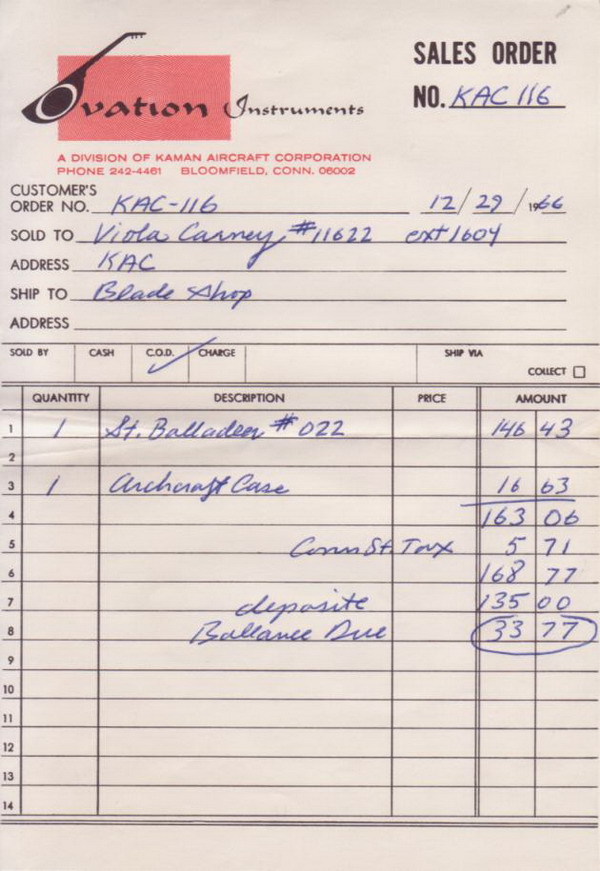 SALES ORDER
NO. KAC 116
Ovation Instruments
A DIVISION OF KAMAN AIRCRAFT CORPORATION
PHONE 242-4461 BLOOMFIELD, CONN. 06002
CUSTOMER'S
ORDER NO. KAC-116 12/29/1966
SOLD TO Viola Carney #11622 ext 1604
ADDRESS KAC
SHIP TO Blade Shop
ADDRESS
SOLD BY CASH C.O.D. ✓ CHARGE SHIP VIA
COLLECT ☐
QUANTITY DESCRIPTION PRICE AMOUNT
1 1 St. Balladeer #022 146 43
2
3 1 Archcraft Case 16 63
4 163 06
5 Conn St. Tax 5 71
6 168 77
7 deposite 135 00
8 Ballance Due 33 77
9
10
11
12
13
14